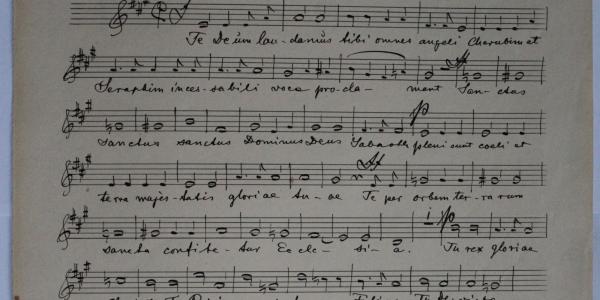 Te Deum lau- damus tibi omnes angeli Cherubim et
Seraphim inces- sabili voce pro-cla- mant San- ctus
ff
Sanctus sanctus Dominus Deus Sabaoth pleni sunt coeli et
p
terra majes- tatis gloriae tu- ae Te per orbem ter- ra rum
ff
sancta confite- tur Eccle- si- a. Tu rex gloriae
p